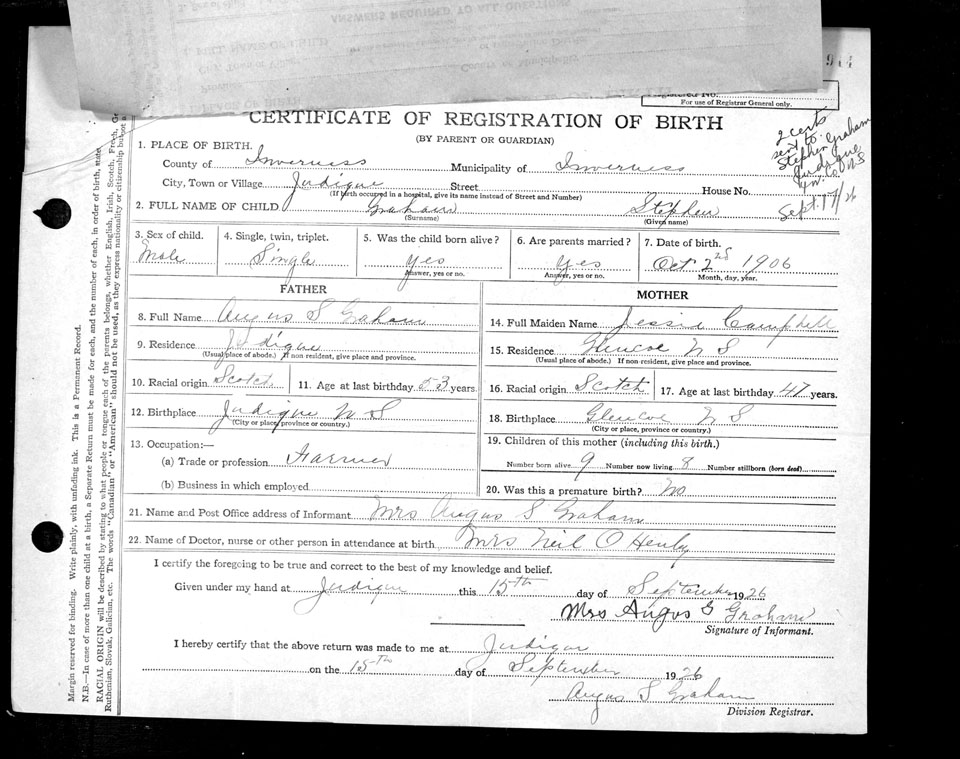 914
For use of Registrar General only.
CERTIFICATE OF REGISTRATION OF BIRTH
(BY PARENT OR GUARDIAN)
2 certs
sent to
Stephen Graham
Judique
Inv. Co. N S
Sept. 17/26
1. PLACE OF BIRTH.
County of Inverness Municipality of Inverness
City, Town or Village Judique Street House No.
(If birth occurred in a hospital, give its name instead of Street and Number)
2. FULL NAME OF CHILD Graham Stephen
(Surname) (Given name)
3. Sex of child. 4. Single, twin, triplet. 5. Was the child born alive? 6. Are parents married? 7. Date of birth.
Male Single Yes Yes Oct 2nd 1906
Answer, yes or no. Answer, yes or no. Month, day, year.
FATHER
8. Full Name Angus S Graham
9. Residence Judique
(Usual place of abode.) If non-resident, give place and province.
10. Racial origin Scotch 11. Age at last birthday 53 years.
12. Birthplace Judique N S
(City or place, province or country.)
13. Occupation:—
(a) Trade or profession Farmer
(b) Business in which employed
MOTHER
14. Full Maiden Name Jessie Campbell
15. Residence Glencoe N S
(Usual place of abode.) If non-resident, give place and province.
16. Racial origin Scotch 17. Age at last birthday 47 years.
18. Birthplace Glencoe N S
(City or place, province or country.)
19. Children of this mother (including this birth.)
Number born alive 9 Number now living 8 Number stillborn (born dead)
20. Was this a premature birth? No
21. Name and Post Office address of Informant. Mrs Angus S Graham
22. Name of Doctor, nurse or other person in attendance at birth Mrs Neil O Henly
I certify the foregoing to be true and correct to the best of my knowledge and belief.
Given under my hand at Judique this 15th day of September 1926
Mrs Angus S Graham
Signature of Informant.
I hereby certify that the above return was made to me at Judique
on the 15th day of September 1926
Angus S Graham
Division Registrar.
Margin reserved for binding. Write plainly, with unfading ink. This is a Permanent Record.
N.B.—In case of more than one child at a birth, a Separate Return must be made for each, and the number of each, in order of birth, state
RACIAL ORIGIN will be described by stating to what people or tongue each of the parents belongs, whether English, Irish, Scotch, French, Ge
Ruthenian, Slovak, Galician, etc. The words "Canadian" or "American" should not be used, as they express nationality or citizenship but not a